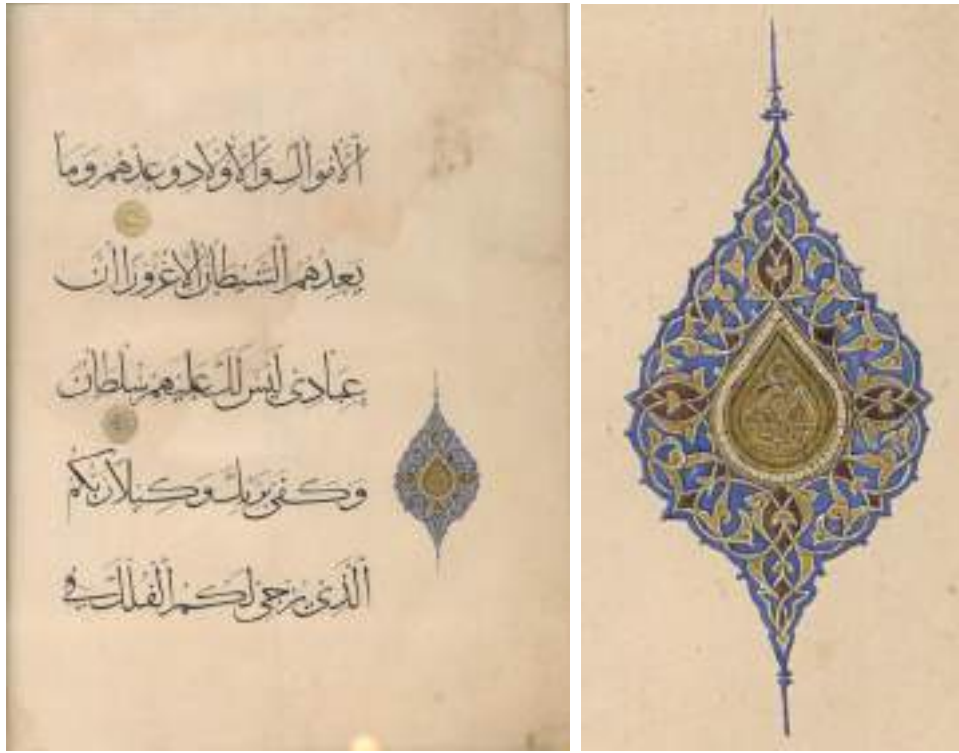 الأموال والأولاد وعدهم وما
يعدهم الشيطان إلا غرورا إن
عبادي ليس لك عليهم سلطان
وكفى بربك وكيلا ربكم
الذي يزجي لكم الفلك في